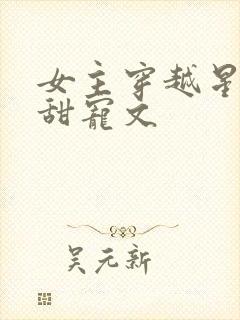 女主穿越星
甜寵文
吴元新